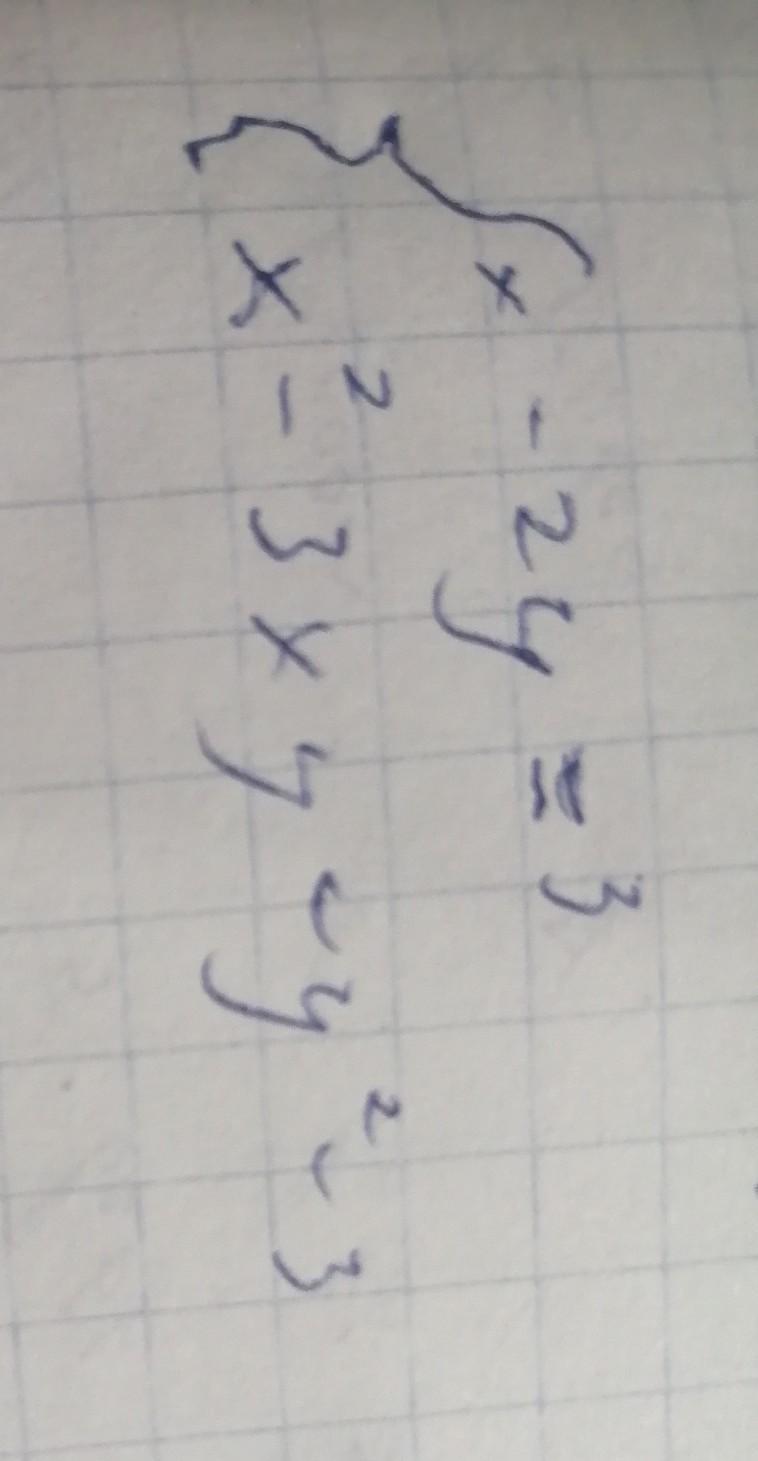 { x - 2y = 3
x² - 3xy - y² - 3